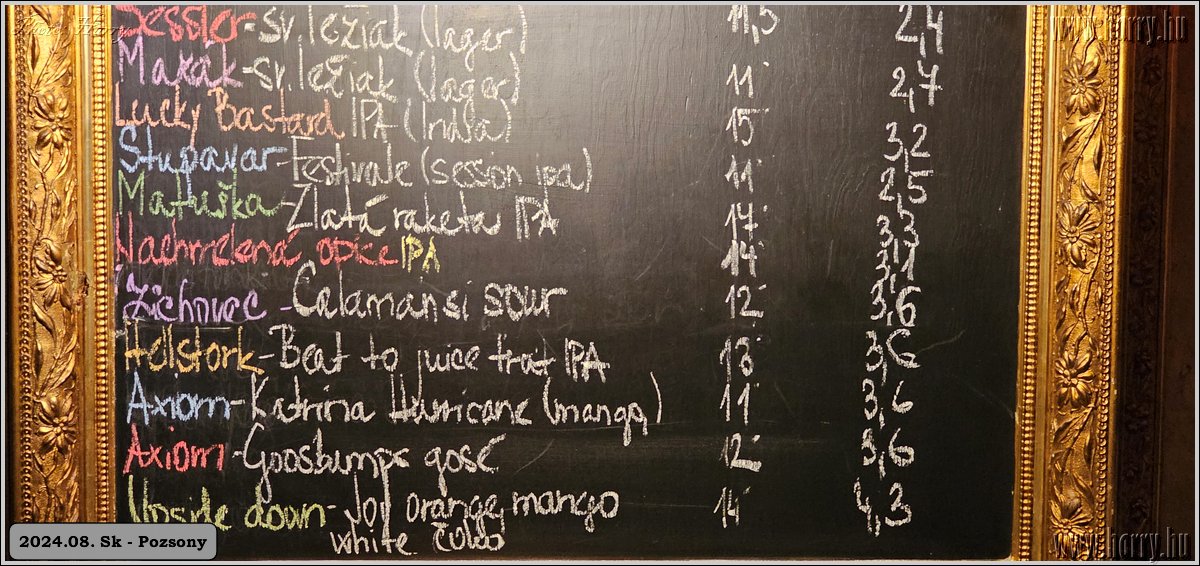 Sessler-sv.ležiak (lager) 11,5 2,4
Maxák-sv.ležiak (lager) 11° 2,7
Lucky Bastard IPA (India) 15° 3,2
Stupavar-Festivale (sesson ipa) 11° 2,5
Matuška-Zlatá raketa IPA 17° 3,3
Nachmelená opice IPA 14° 3,1
Zichovec -Calamansi sour 12° 3,6
Hellstork-Beat to juice trat IPA 13° 3,6
Axiom-Katrina Hurricane (mango) 11° 3,6
Axiom-Goosbumps gose 12° 3,6
Upside down-Joy orange, mango 14° 4,3
white čoko
2024.08. Sk - Pozsony
www.horry.hu
www.horry.hu